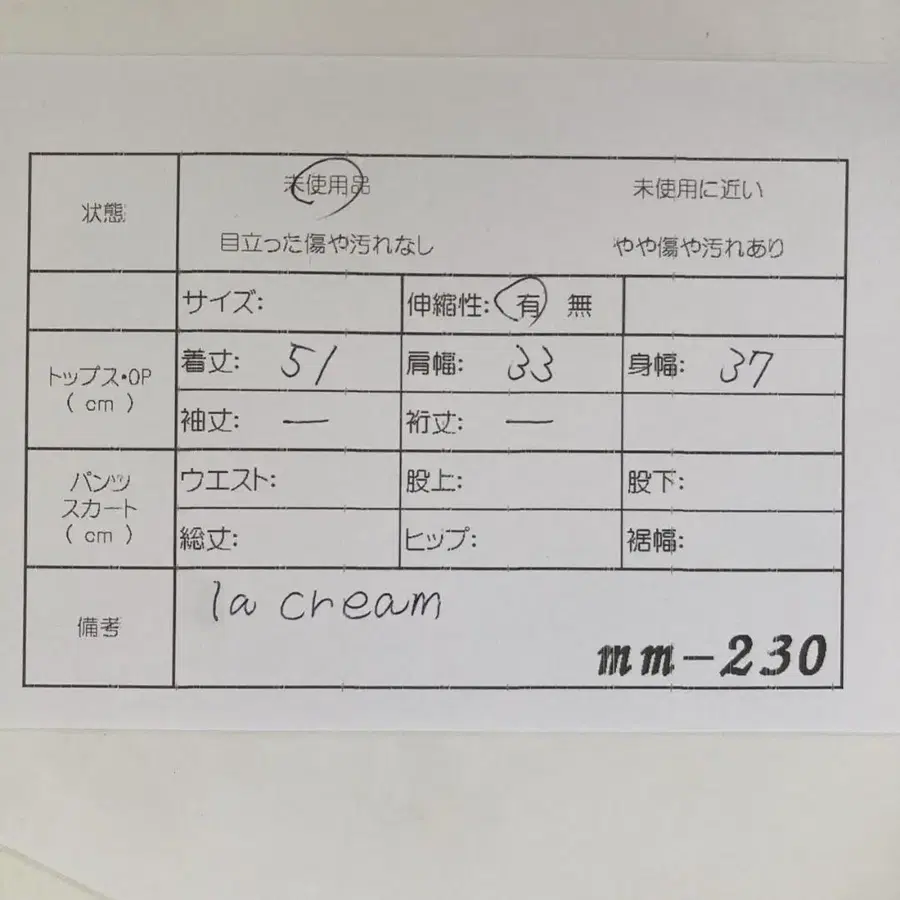 状態
未使用品 未使用に近い
目立った傷や汚れなし やや傷や汚れあり
サイズ: 伸縮性: 有 無
トップス・OP
( cm )
着丈: 51 肩幅: 33 身幅: 37
袖丈: — 裄丈: —
パンツ
スカート
( cm )
ウエスト: 股上: 股下:
総丈: ヒップ: 裾幅:
備考
la cream
mm-230